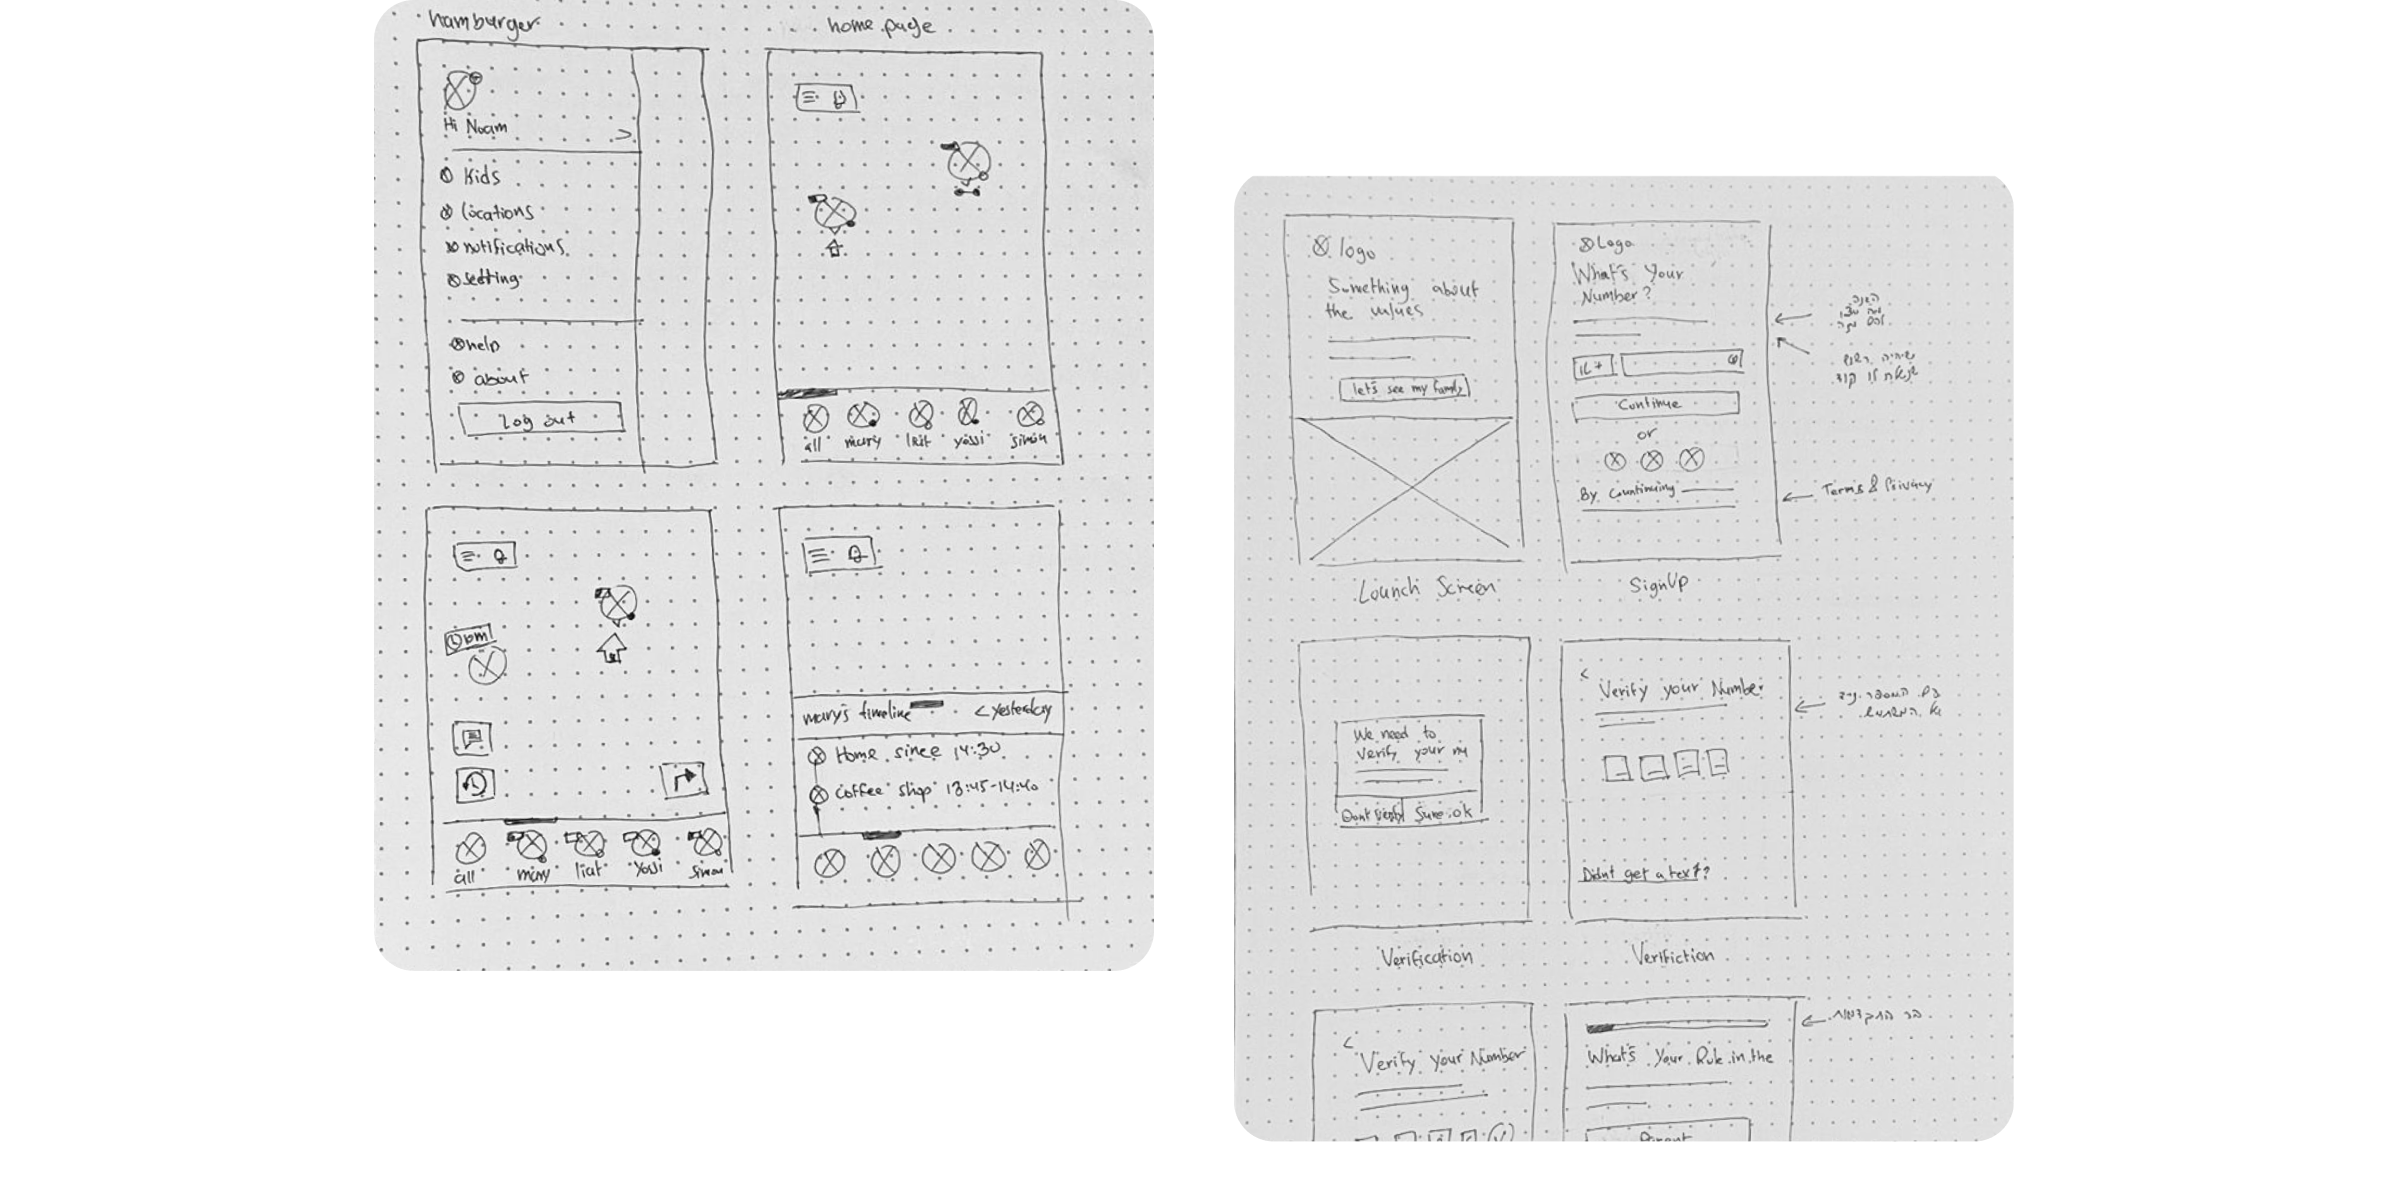 hamburger
Hi Noam
>
Kids
locations
notifications
setting
help
about
Log out
home page
all mary yossi simon
pm
all mary liat Yossi simon
mary's timeline < Yesterday
Home since 14:30
Coffee shop 13:45-14:40
logo
Something about
the values
let's see my family
Lounch Screen
Logo
What's Your
Number?
Continue
or
By countinuing
Terms & Privacy
SignUp
We need to
Verify your
Dont Verify Sure ok
Verification
<
Verify your Number
Didnt get a text?
Verifiction
<
Verify your Number
What's Your Role in the
Parent
בר התקדמות